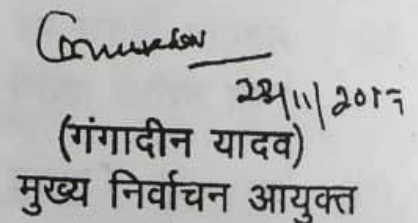 28/11/2017
(गंगादीन यादव)
मुख्य निर्वाचन आयुक्त